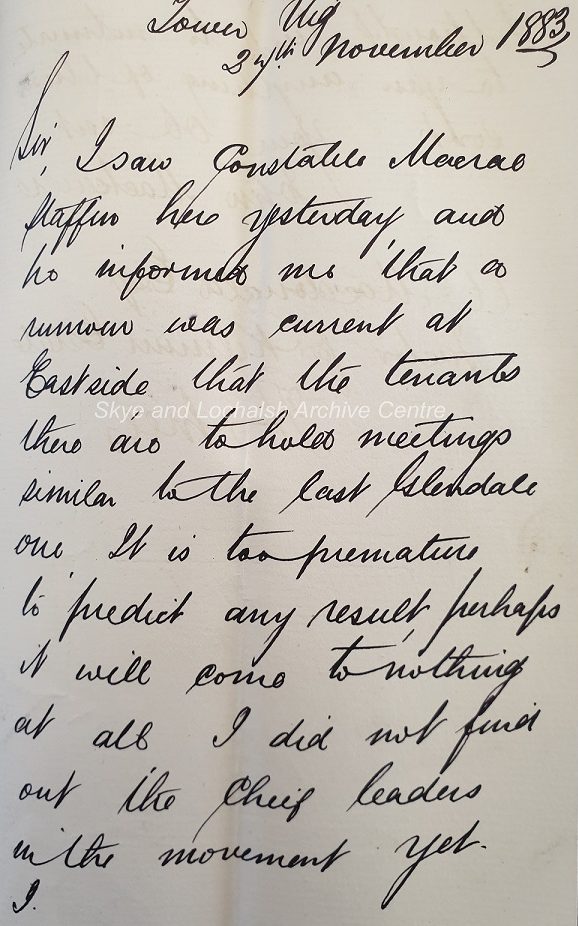 Lower Uig
27th November 1883
Sir,
I saw Constable Macrae
Staffin here yesterday and
he informed me that a
rumour was current at
Eastside that the tenants
Skye and Lochalsh Archive Centre
there are to hold meetings
similar to the last Glendale
one. It is too premature
to predict any result perhaps
it will come to nothing
at all I did not find
out the Cheif leaders
in the movement yet.
I.